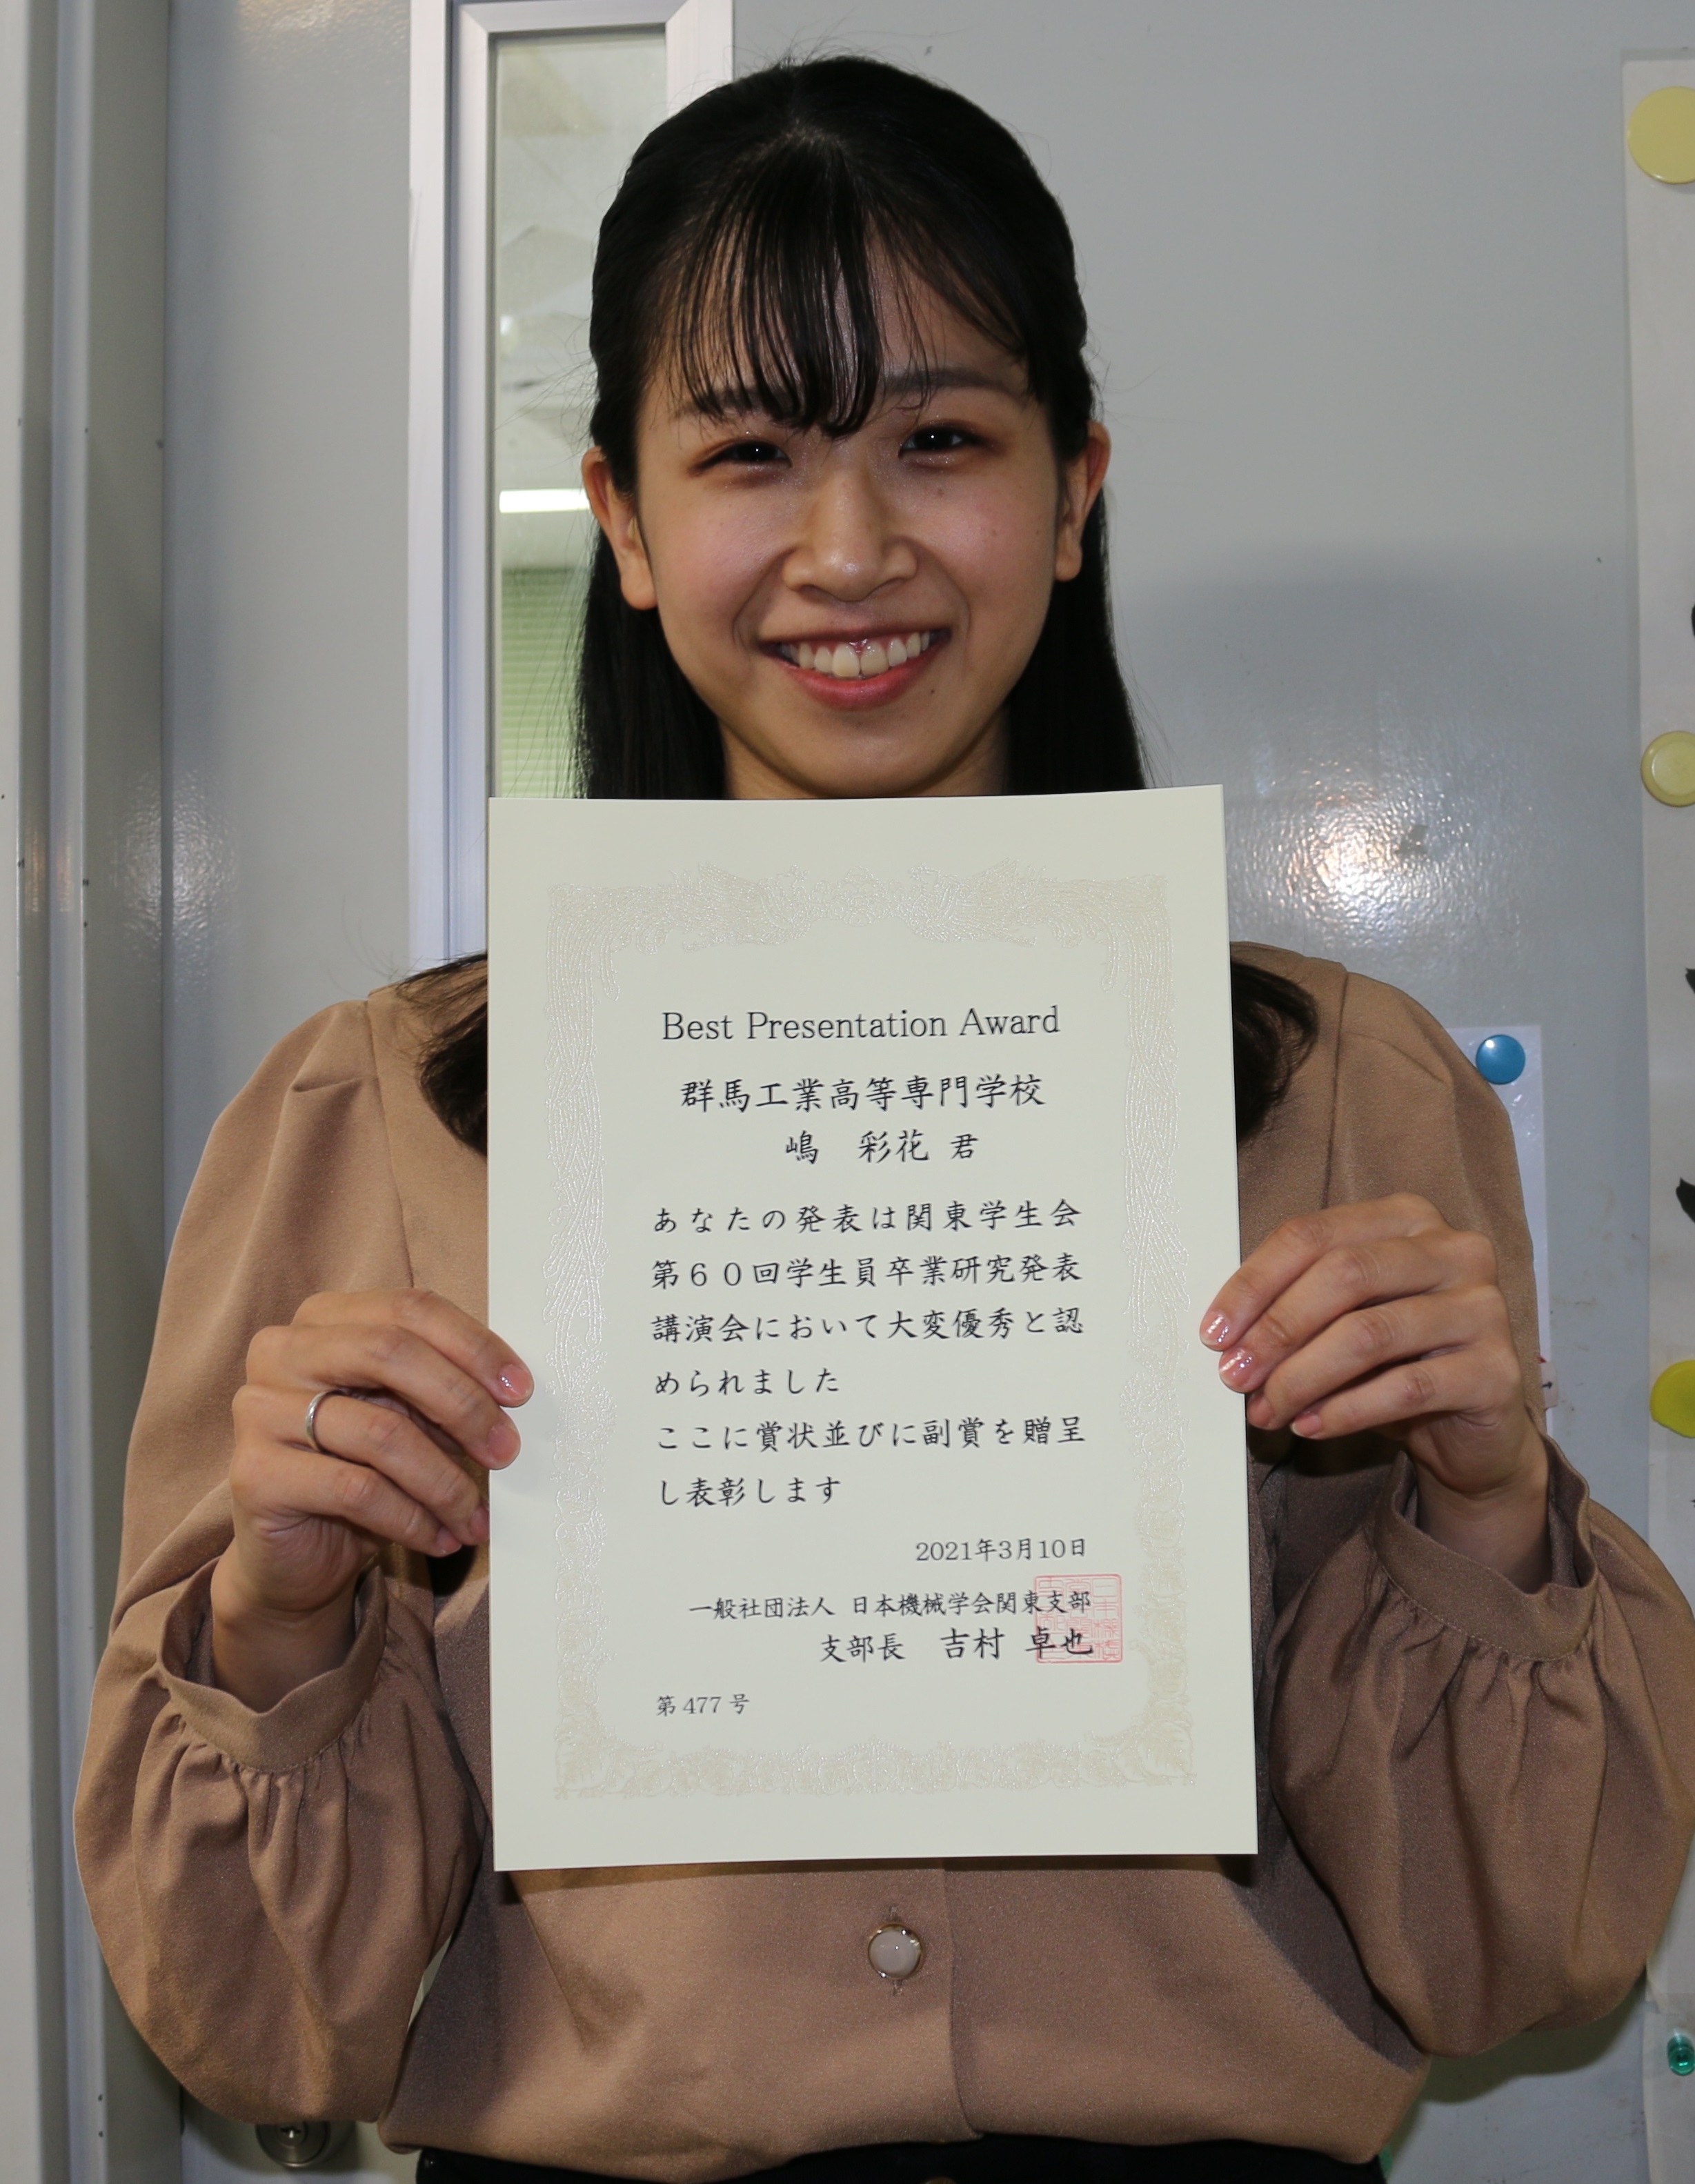 Best Presentation Award
群馬工業高等専門学校
嶋　彩花 君
あなたの発表は関東学生会
第６０回学生員卒業研究発表
講演会において大変優秀と認
められました
ここに賞状並びに副賞を贈呈
し表彰します
2021年3月10日
一般社団法人 日本機械学会関東支部
支部長　吉村 卓也
第 477 号